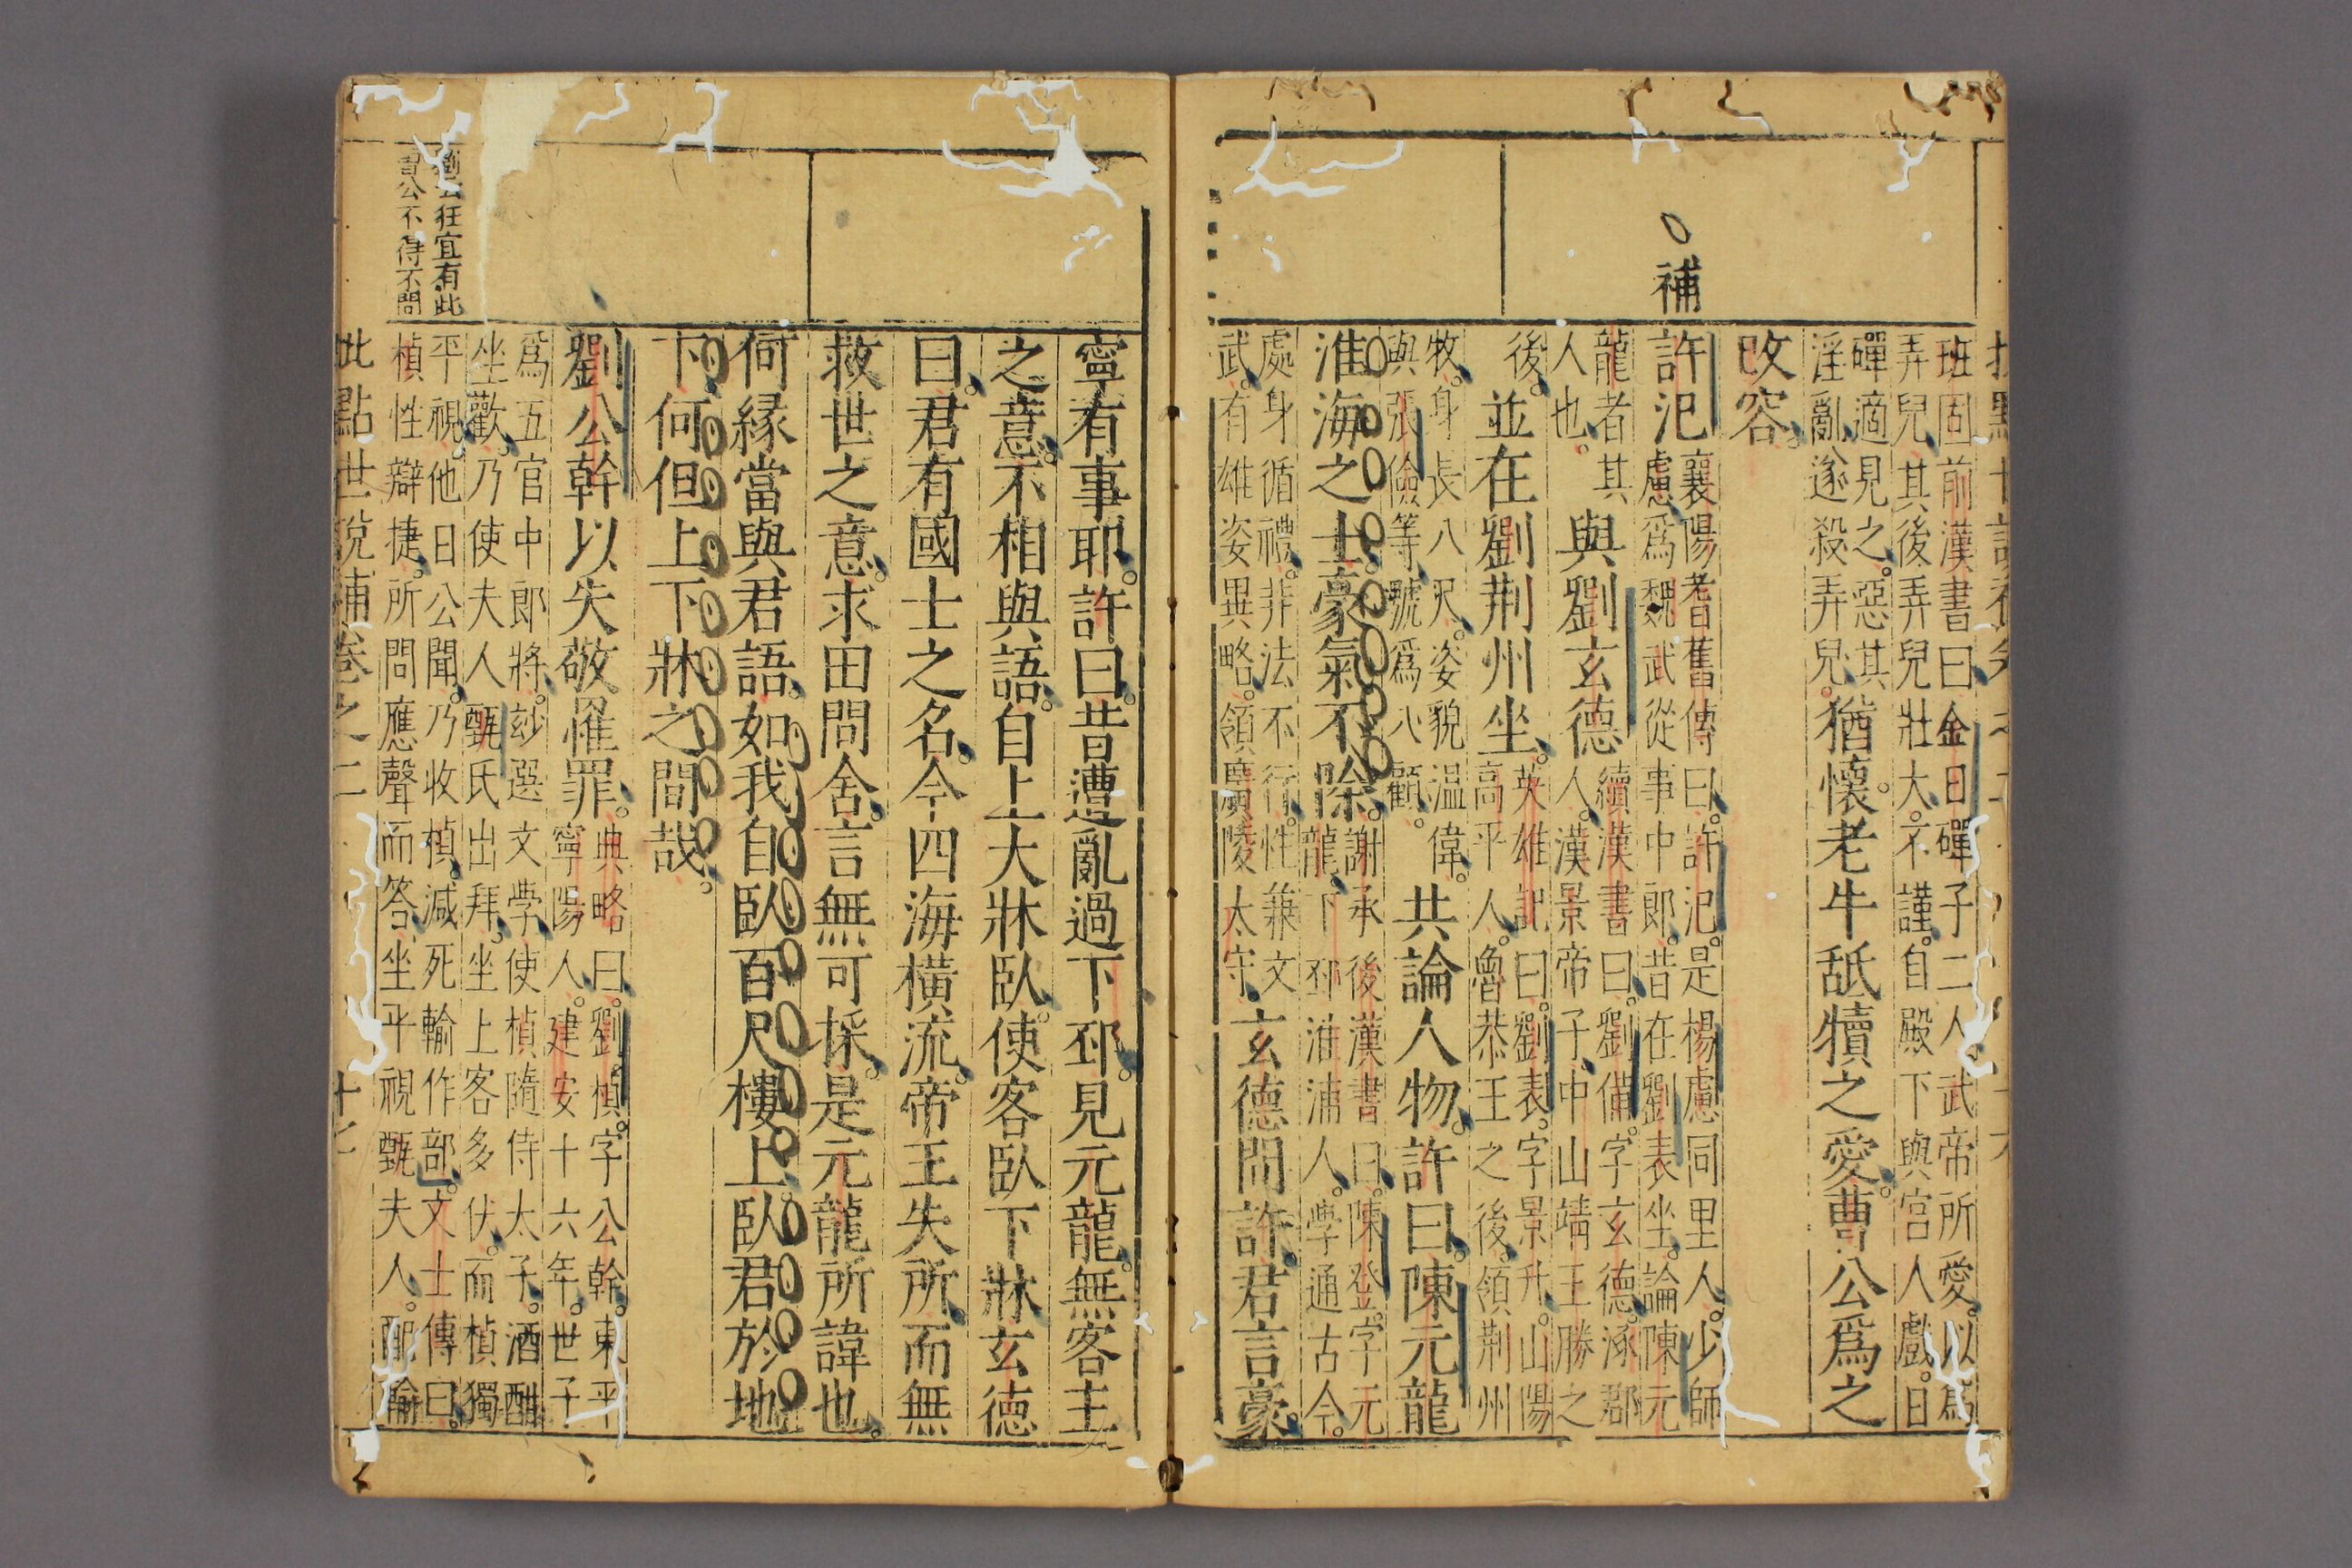 班固前漢書曰金日磾子二人武帝所愛以爲
弄兒其後弄兒壯大不謹自殿下與宮人戲日
磾適見之惡其
淫亂遂殺弄兒
猶懷老牛舐犢之愛曹公爲之
改容
補
許汜
襄陽耆舊傳曰許汜是楊慮同里人少師
慮爲魏武從事中郎昔在劉表坐論陳元
龍者其
人也
與劉玄德
續漢書曰劉備字玄德涿郡
人漢景帝子中山靖王勝之
後
並在劉荆州坐
英雄記曰劉表字景升山陽
高平人魯恭王之後領荆州
牧身長八尺姿貌温偉
與張儉等號爲八顧
共論人物許曰陳元龍
淮海之士豪氣不除
謝承後漢書曰陳登字元
龍下邳淮浦人學通古今
處身循禮非法不行性兼文
武有雄姿異略領廣陵太守
玄德問許君言豪
寧有事耶許曰昔遭亂過下邳見元龍無客主
之意不相與語自上大牀臥使客臥下牀玄德
曰君有國士之名今四海橫流帝王失所而無
救世之意求田問舍言無可採是元龍所諱也
何緣當與君語如我自臥百尺樓上臥君於地
下何但上下牀之間哉
劉公幹以失敬罹罪
典略曰劉楨字公幹東平
寧陽人建安十六年世子
爲五官中郎將妙選文學使楨隨侍太子酒酣
坐歡乃使夫人甄氏出拜坐上客多伏而楨獨
平視他日公聞乃收楨減死輸作部文士傳曰
楨性辯捷所問應聲而答坐平視甄夫人配輸
狂宜有此
曹公不得不問
此點世說補卷之二 十七